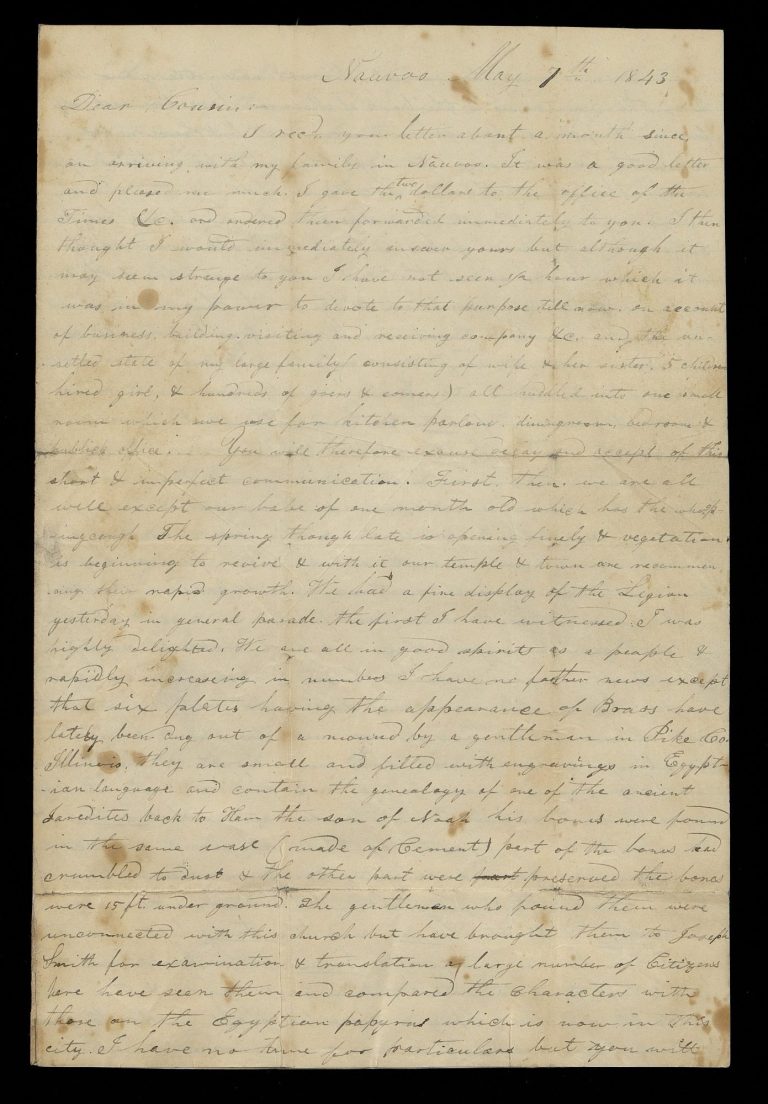 Nauvoo May 7th 1843
Dear Cousin
I recd. your letter about a month since,
on arriving with my family in Nauvoo. It was a good letter
and pleased me much. I gave the two dollars to the office of the
Times &c. and ordered them forwarded immediately to you. I then
thought I would immediately answer yours but although it
may seem strange to you I have not seen ½ hour which it
was in my power to devote to that purpose till now. on account
of business, building, visiting and receiving company &c. and the un-
setled state of my large family (consisting of wife & her sister, 5 children
hired girl, & hundreds of goers & comers) all huddled into one small
room which we use for kitchen parlour, diningroom, bedroom &
publick office. You will therefore excuse delay and accept of this
short & imperfect communication. First, then, we are all
well except our babe of one month old which has the whoop-
ingcough The spring though late is opening finely & vegetation
is beginning to revive & with it our temple & town are recommen
cing their rapid growth. We had a fine display of the Legion
yesterday in general parade. the first I have witnessed. I was
highly delighted. We are all in good spirits as a people &
rapidly increasing in numbers I have no further news except
that six plates having the appearance of Brass have
lately been dug out of a mound by a gentleman in Pike Co.
Illinois. they are small and filled with engravings in Egypt-
-ian language and contain the genealogy of one of the ancient
Jaredites back to Ham the son of Noah his bones were found
in the same vase (made of Cement) part of the bones had
crumbled to dust & the other part were preserved the bones
were 15 ft. under ground. The gentlemen who found them were
unconnected with this church but have brought them to Joseph
Smith for examination & translation a large number of Citizens
here have seen them and compared the characters with
those on the Egyptian papyrus which is now in this
city. I have no time for particulars but you will